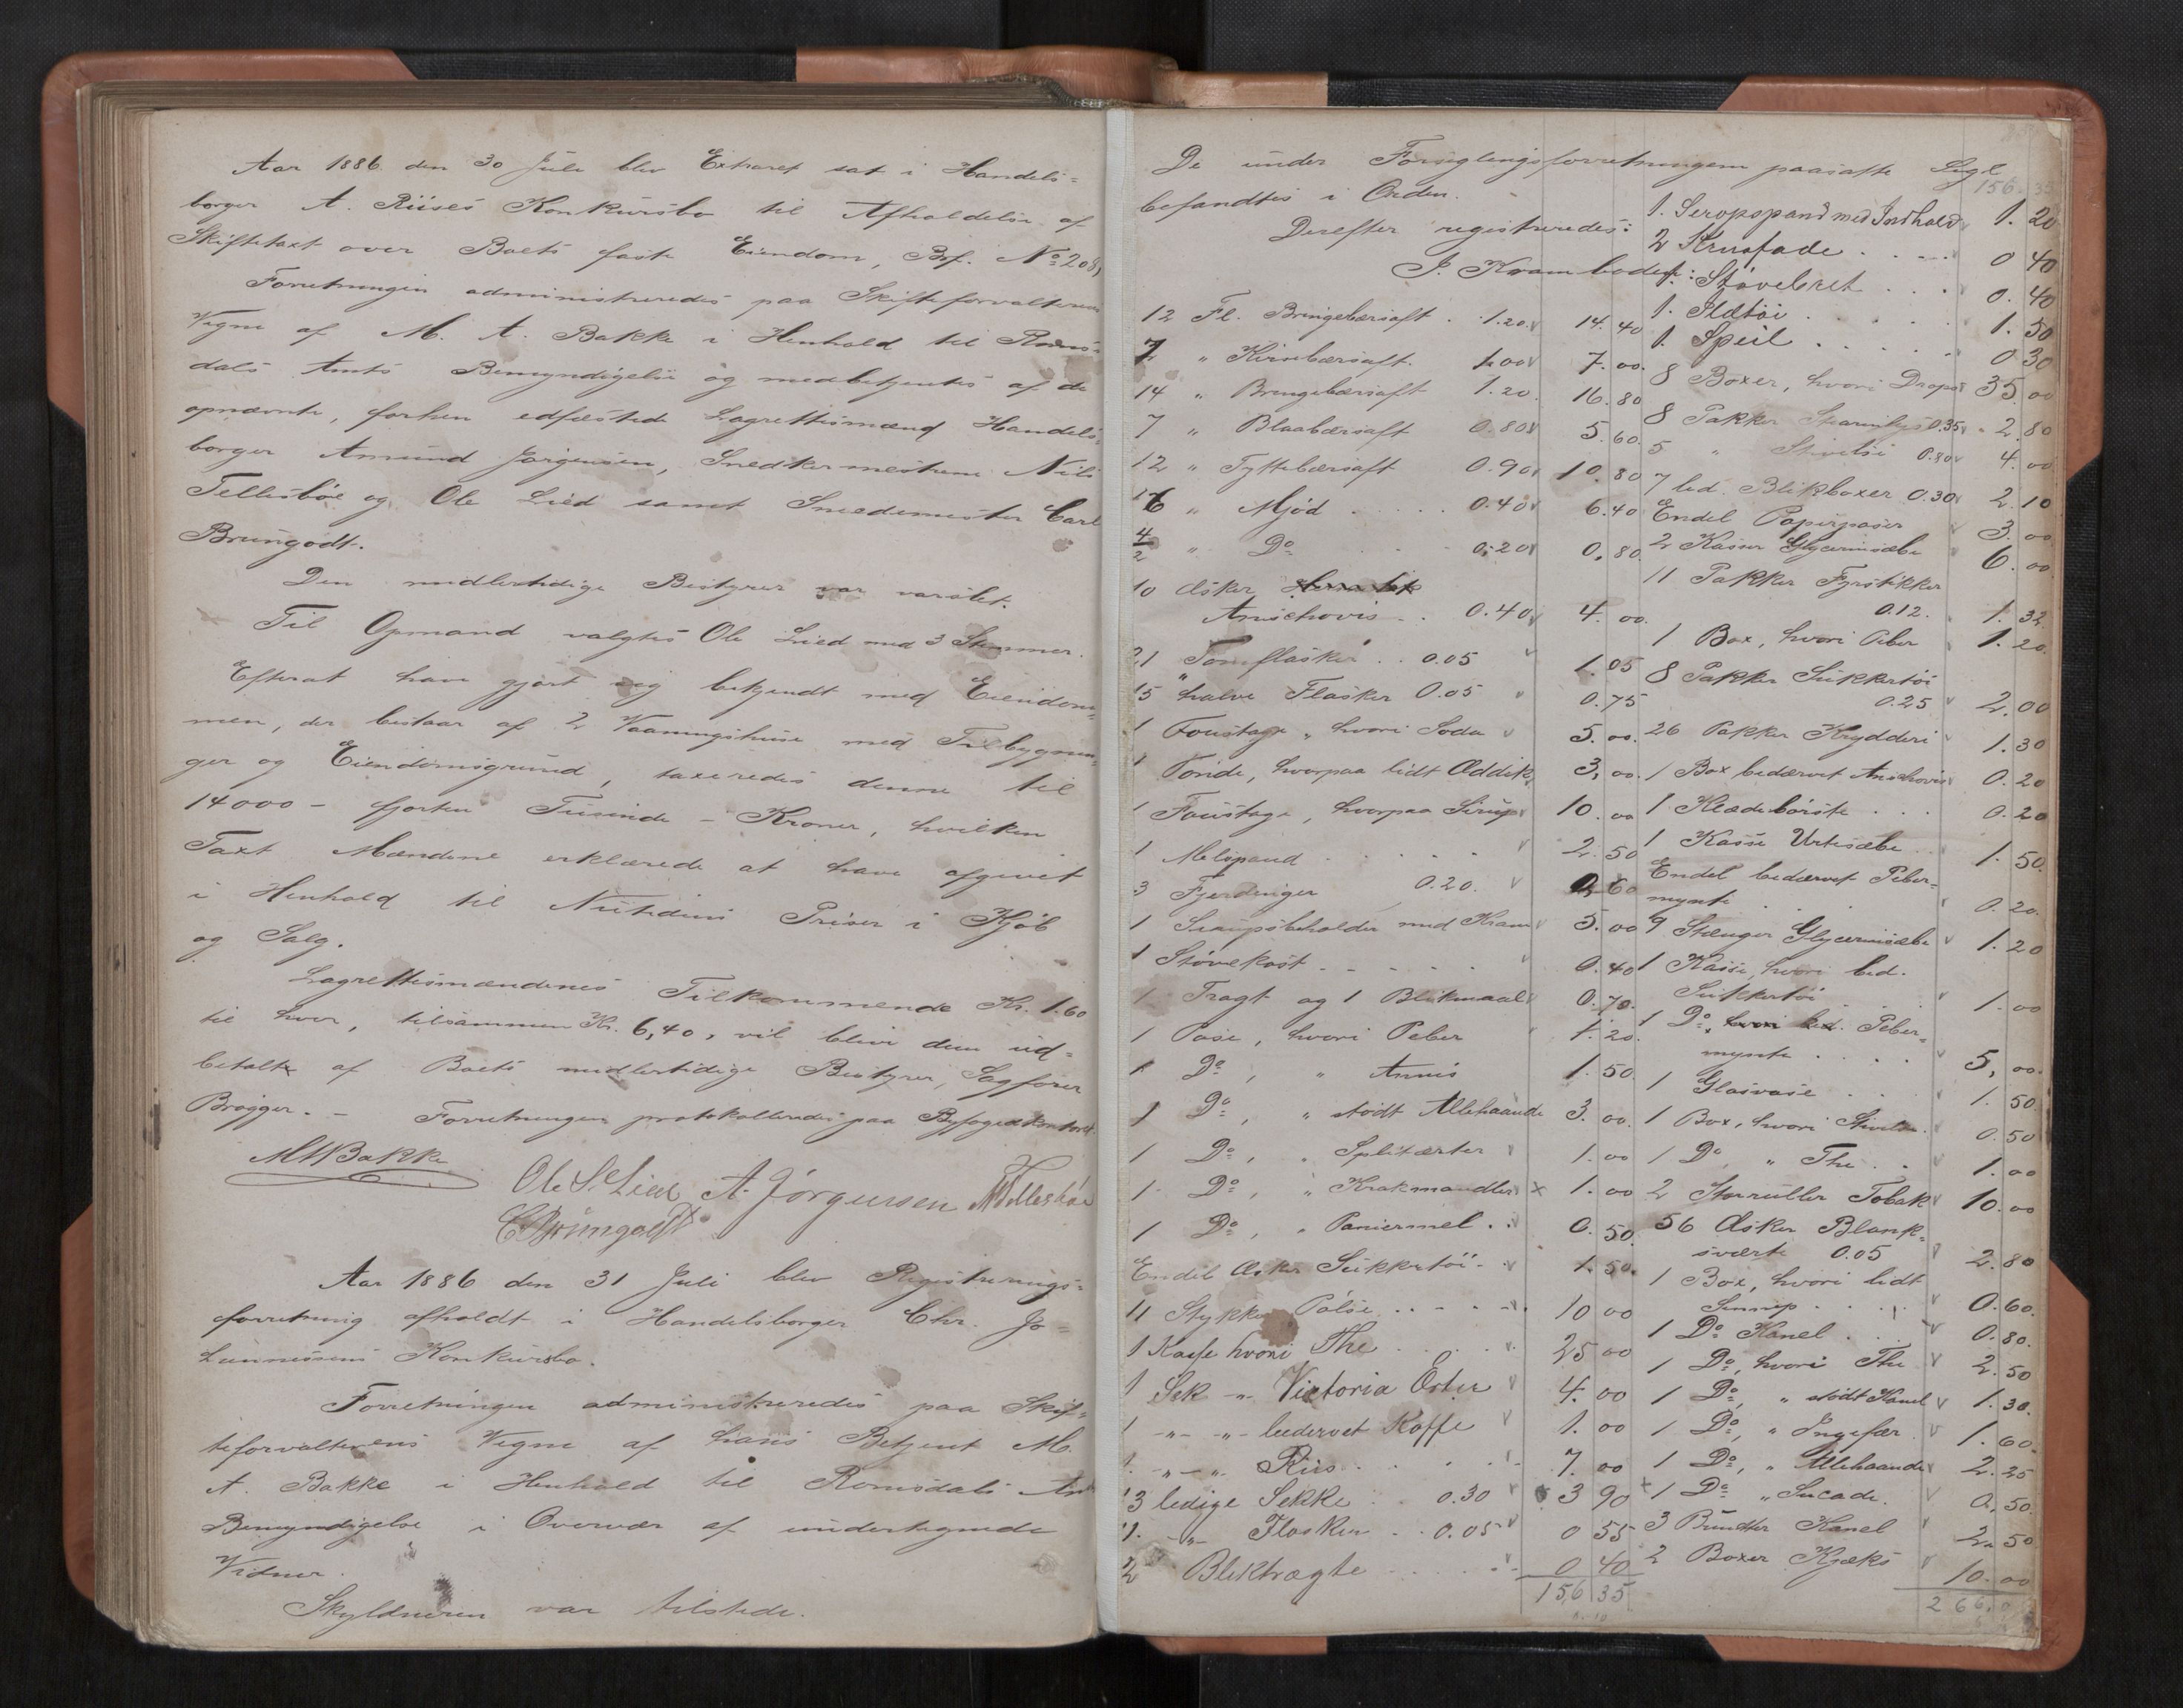 Aar 1886 den 30 Juli blev Extraret sat i Handels-
borger A. Riises Konkursbo til Afholdelse af
Skiftetaxt over Boets faste Eiendom, Bf. No 208,
Forretningen administreredes paa Skifteforvalterens
Vegne af M. A. Bakke i Henhold til Roms-
dals Amts Bemyndigelse og medbetjentes af de
opnævnte, forhen edfæstede Lagrettesmænd Handels-
borger Amund Jørgensen, Snedkermestrene Nils
Tellesbøe og Ole Lied samt Smedemester Carl
Brungodt.
Den midlertidige Bestyrer var varslet.
Til Opmand valgtes Ole Lied med 3 Stemmer.
Efterat have gjort sig bekjendt med Eiendom-
men, der bestaar af 2 Vaaningshuse med Tilbygnin-
ger og Eiendomsgrund, taxeredes denne til
14000 - fjorten Tusinde - Kroner, hvilken
Taxt Mændene erklærede at have afgivet
i Henhold til Nutidens Priser i Kjøb
og Salg.
Lagrettesmændenes Tilkommende Kr. 1.60
til hver, tilsammen Kr. 6,40, vil blive dem ud-
betalt af Boets midlertidige Bestyrer, Sagfører
Brøgger. - Forretningen protokolleredes paa Byfogedkontoret.
M A Bakke
Ole S. Lied A. Jørgensen N Tellesbøe
C Brungodt
Aar 1886 den 31 Juli blev Registrerings-
forretning afholdt i Handelsborger Chr. Jo-
hannessens Konkursbo.
Forretningen administreredes paa Skif-
teforvalterens Vegne af hans Betjent M.
A. Bakke i Henhold til Romsdals Amts
Bemyndigelse i Overvær af undertegnede
Vidner.
Skyldneren var tilstede.
De under Forseglingsforretningen paasatte Segl
befandtes i Orden.
Derefter registreredes:
I. Kramboden:
12 Fl. Bringebærsaft . 1.20 14.40
7 " Kirsebærsaft. 1.00 7.00.
14 " Bringebærsaft 1.20 16.80
7 " Blaabærsaft 0.80 5.60.
12 " Tyttebærsaft 0.90 10.80
16 " Mjød . . . . . 0.40 6.40
4/2 " Do 0.20 0,80
10 Æsker
Anschovis . . 0.40 4.00.
21 Tomflasker . . 0.05 1.05
15 halve Flasker 0.05 " 0.75
1 Foustage, hvori Soda 5.00.
1 Tønde, hvorpaa lidt Æddik 3,00.
1 Foustage, hvorpaa Sirup 10.00
1 Melspand . . . . . 2.50
3 Fjerdinger 0.20. 0.60
1 Sirupsbeholder med Kran 5.00
1 Støvekost . . . . . 0.40
1 Tragt og 1 Blikmaal 0.70.
1 Pose, hvori Peber 1.20.
1 Do, " Annis 1.50
1 Do, " stødt Allehaande 3.00.
1 Do, " Spliterter 1.00
1 Do, " Krakmandler x 1.00
1 Do, " Paniermel . . 0.50.
Endel Æsker Sukkertøi . 1.50.
11 Stykker Pølse . . . . . 10 00
1 Kasse hvori The . . . . 25 00
1 Sek -"- Victoria Erter 4.00
1 -"- -"- bedervet Kaffe 1.00
1. -"- -"- Riis . . . . . 7.00
13 ledige Sekke . 0.30 3 90
11. -"- Flasker . . 0.05 0 55
2 Bliktragte . . . . . . 0 40
156 35
156.35
1. Seropspand med Indhold 1.20
2 Krusfade . . . . 0 40
1. Støvebret . . . 0.40
1. Ildtøi . . . . . 1.50
1. Speil . . . . . 0.30
8 Boxer, hvori Drops 35.00
8 Pakker Stearinlys 0.35 2.80
5 " Stivelse 0.80 4.00
7 led. Blikboxer 0.30 2.10
Endel Papirposer 3.00
2 Kasser Glycerinsæbe 6.00
11 Pakker Fyrstikker
0.12. 1.32
1 Box, hvori Peber 1.20.
8 Pakker Sukkertøi
0.25 2.00
26 Pakker Krydderi 1.30
1 Box bedærvet Anschovis 0.20
1 Klædebørste . . . 0.20
1 Kasse Urtesæbe . . 1.50.
Endel bedærvet Peber-
mynte . . . 0.20.
9 Stænger Glycerinsæbe 1.20
1 Kasse, hvori bed.
Sukkertøi . . . . 1.00
1 Do, hvori bed. Peber-
mynte . . . . 5,00.
1 Glasvase . . . 1.50
1 Box, hvori Stivelse. 0.50
1 Do " The . . 1.00
2 Storruller Tobak 10.00
56 Æsker Blank-
sværte 0.05 2.80
1 Box, hvori lidt
Sennep . . . . 0.60.
1 Do Kanel . . . 0.80.
1 Do, hvori The 2.50
1 Do, " stødt Kanel 1.30.
1 Do, " Ingefær . 1.60.
1 Do, " Allehaande 2.25
x 1 Do " Sucade. 0,50.
3 Bundter Kanel 2.50
2 Boxer Kjæks 10.00
266.